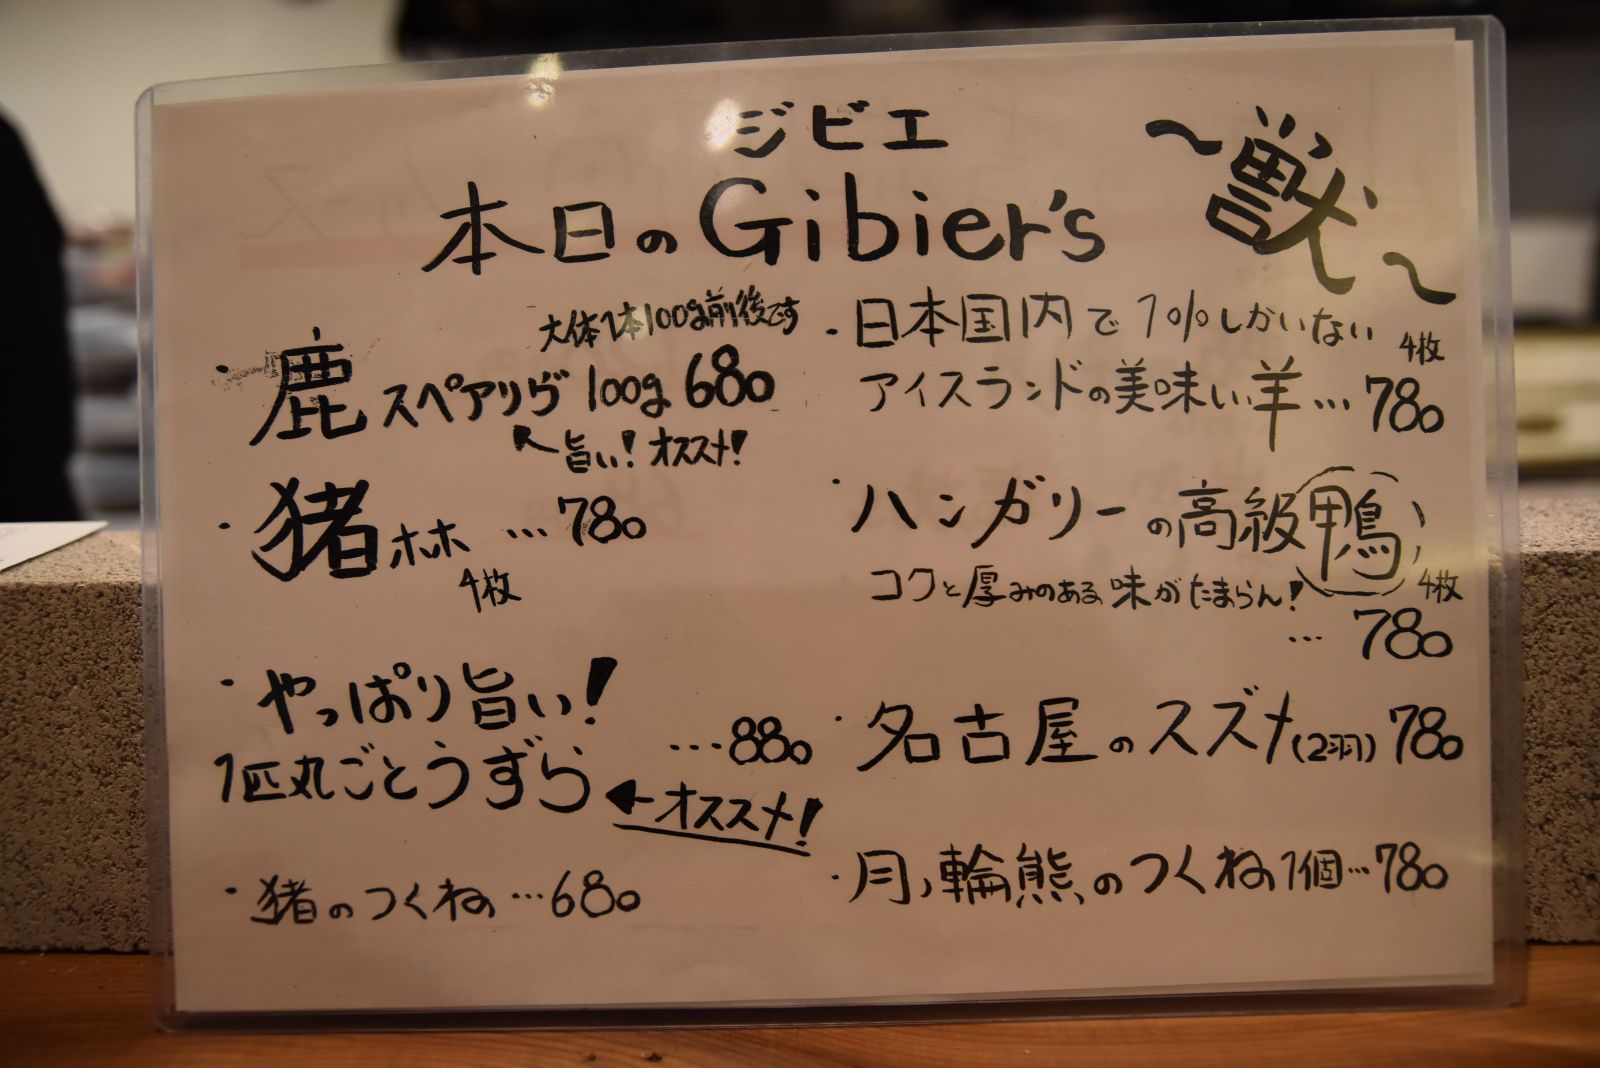 ジビエ
本日のGibier's
～獣～
大体1本100g前後です
・鹿スペアリヴ 100g 680
↖旨い！オススメ！
・猪ホホ …780
4枚
・やっぱり旨い！
1匹丸ごとうずら …880
←オススメ！
・猪のつくね…680
・日本国内で1%しかいない
アイスランドの美味い羊…780
4枚
・ハンガリーの高級鴨
コクと厚みのある味がたまらん！
4枚
…780
・名古屋のスズメ(2羽)780
・月ノ輪熊のつくね1個…780